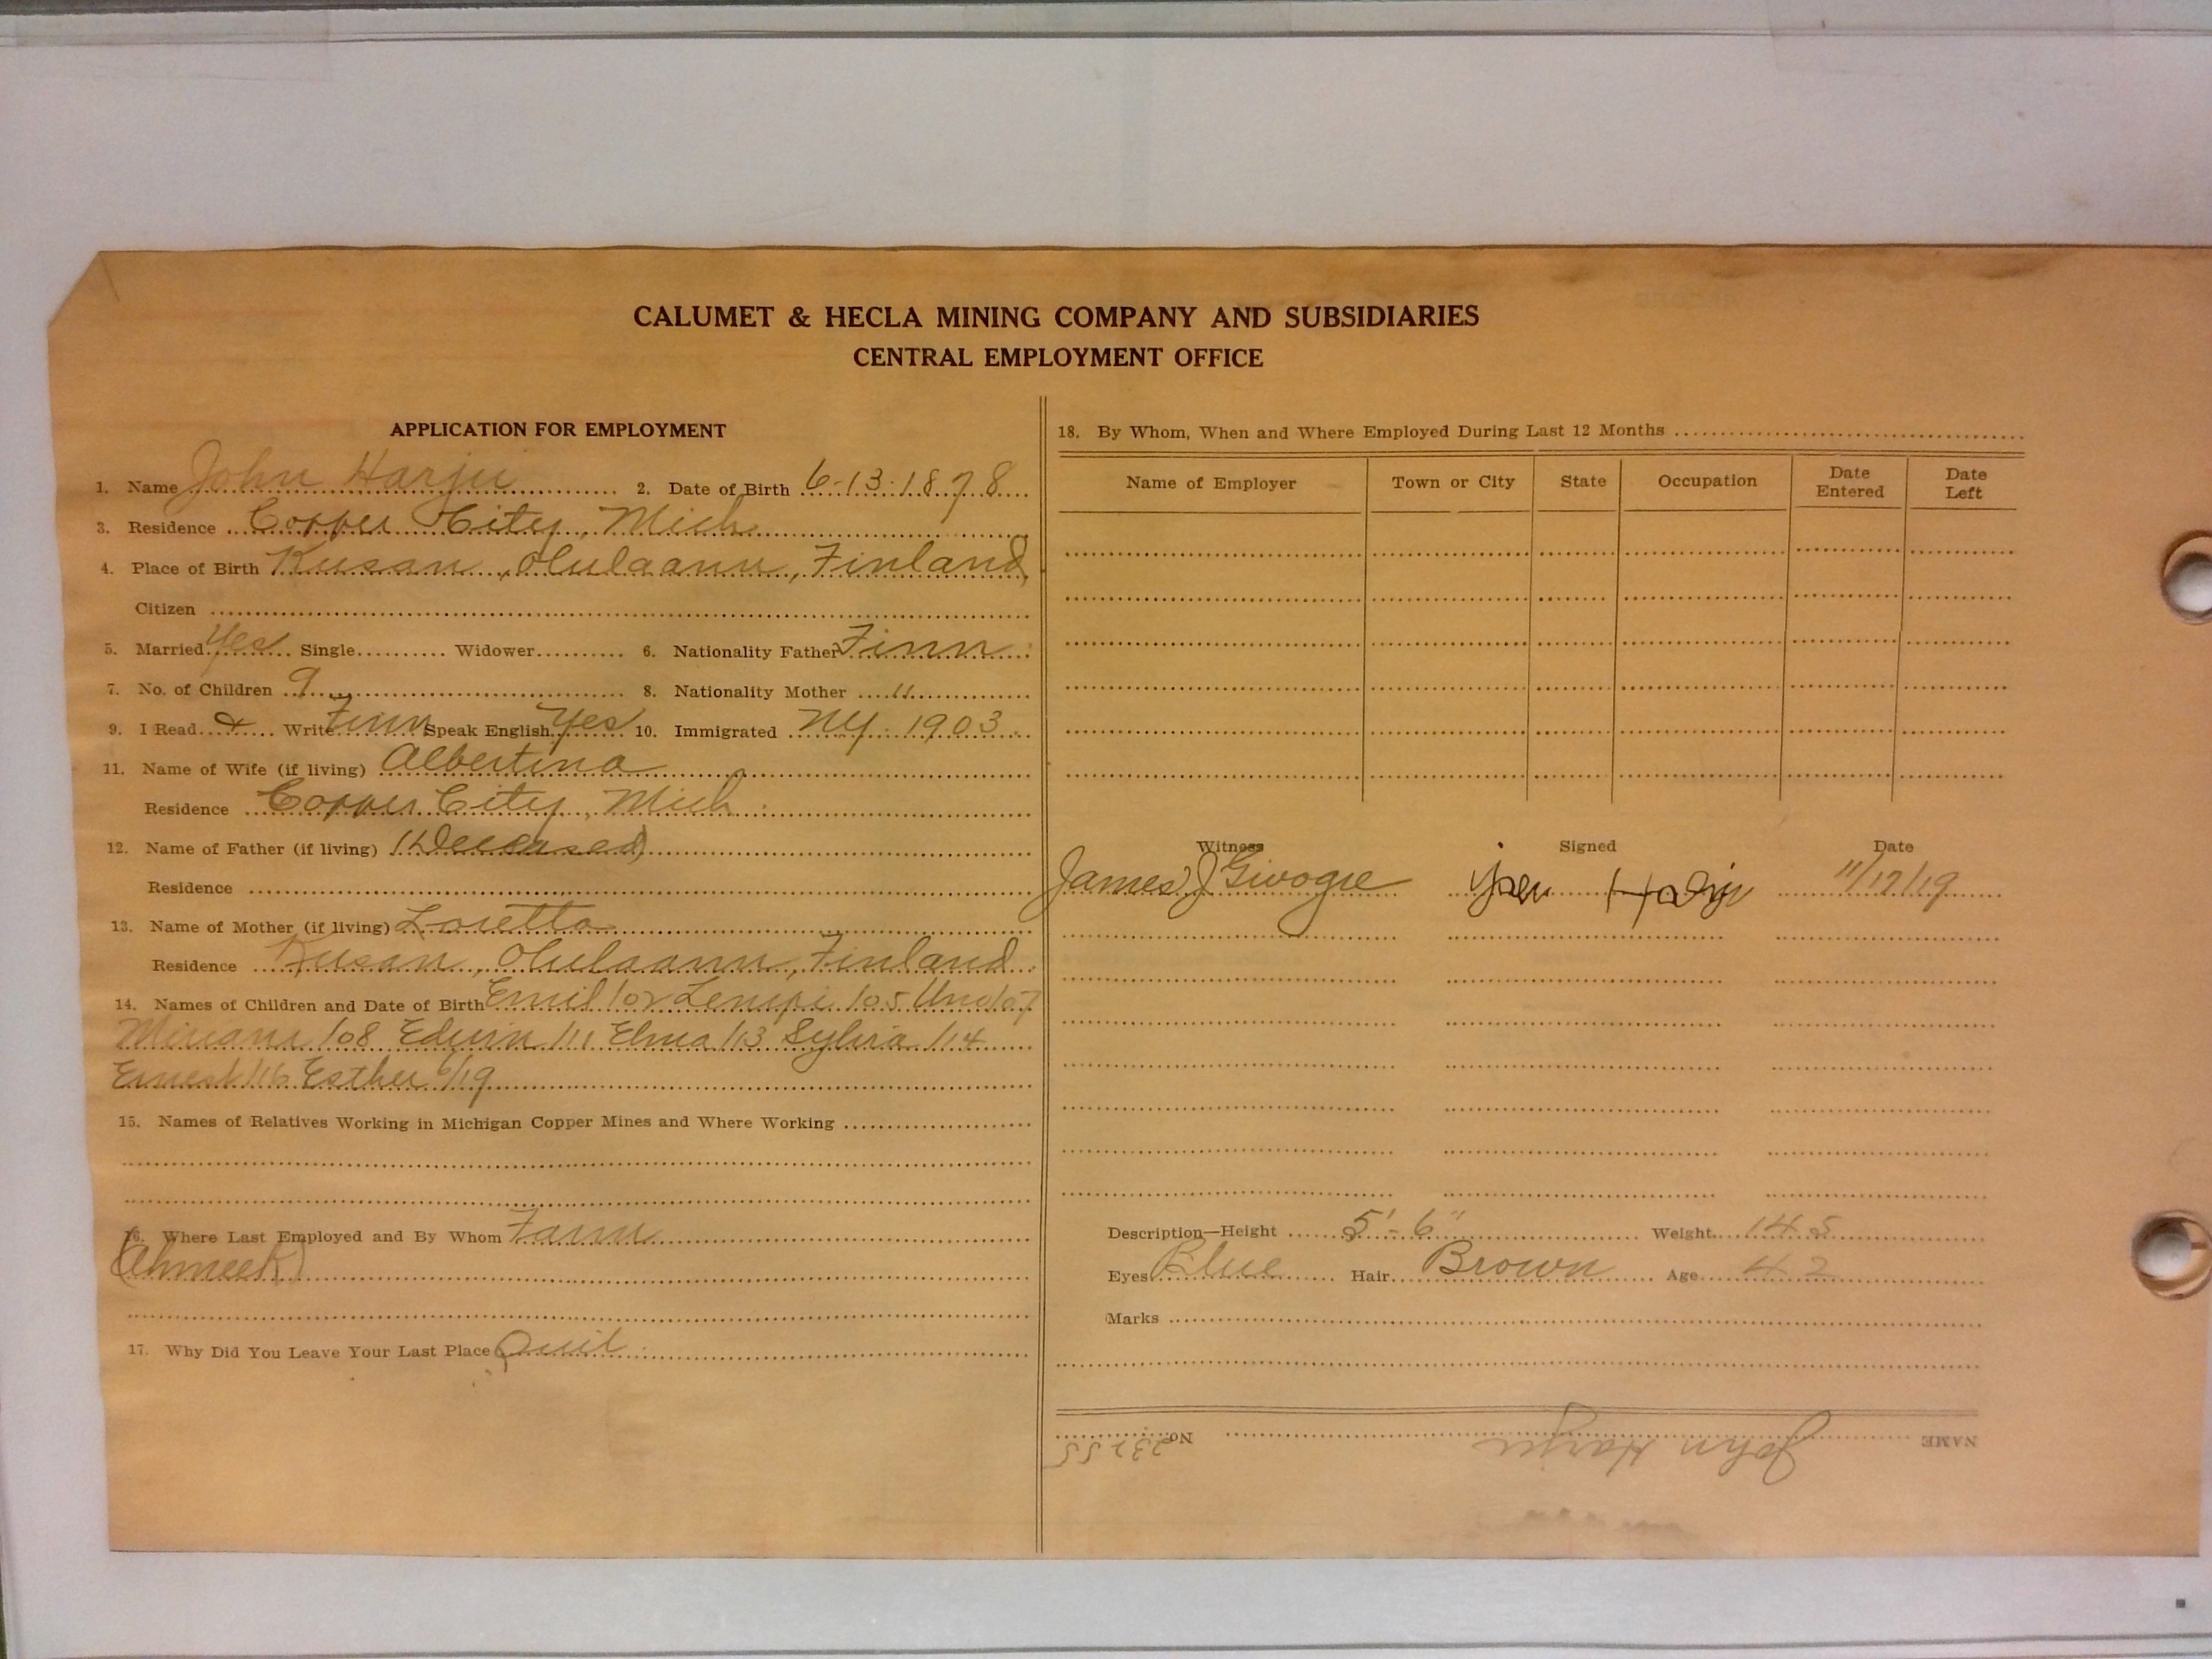 CALUMET & HECLA MINING COMPANY AND SUBSIDIARIES
CENTRAL EMPLOYMENT OFFICE
APPLICATION FOR EMPLOYMENT
1. Name John Harju 2. Date of Birth 6-13-1878
3. Residence Copper City, Mich
4. Place of Birth Kusan, Olulaanu, Finland
Citizen
5. Married Yes Single Widower 6. Nationality Father Finn
7. No. of Children 9 8. Nationality Mother "
9. I Read & Write Finn Speak English Yes 10. Immigrated NY. 1903
11. Name of Wife (if living) Albertina
Residence Copper City, Mich
12. Name of Father (if living) Deceased
Residence
13. Name of Mother (if living) Loretta
Residence Kusan, Olulaanu, Finland
14. Names of Children and Date of Birth Emil /02 Lempi /05
Miriam /08 Edwin /11 Elma /13 Sylvia /14
Ernest /16 Esther 6/19
15. Names of Relatives Working in Michigan Copper Mines and Where Working
16. Where Last Employed and By Whom Farm
(Ahmeek)
17. Why Did You Leave Your Last Place Quit
18. By Whom, When and Where Employed During Last 12 Months
Name of Employer Town or City State Occupation Date Entered Date Left
Witness Signed Date
James J 11/17/19
Description—Height 5'-6" Weight 145
Eyes Blue Hair Brown Age 42
Marks
NAME John Harju No. 23255